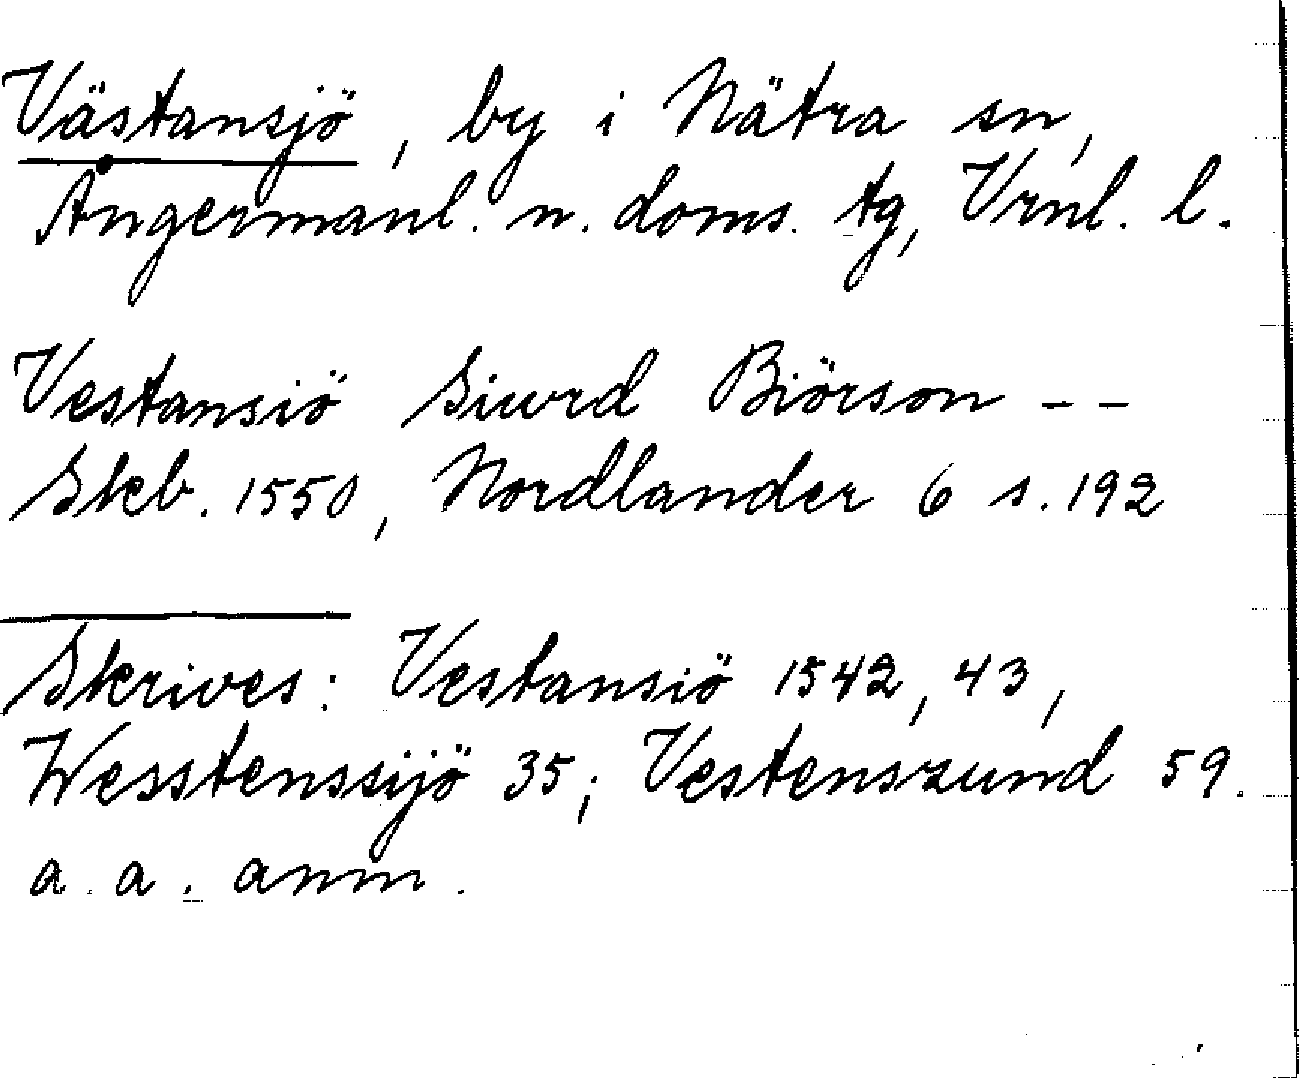 Västansjö, by i Nätra sn,
Ångermanl. n. doms. tg, Vrnl. l.
Vestansiö Siurd Biörson --
Skb. 1550, Nordlander 6 s. 192
Skrives: Vestansiö 1542, 43,
Wesstenssijö 35; Vestenszund 59.
a. a. anm.